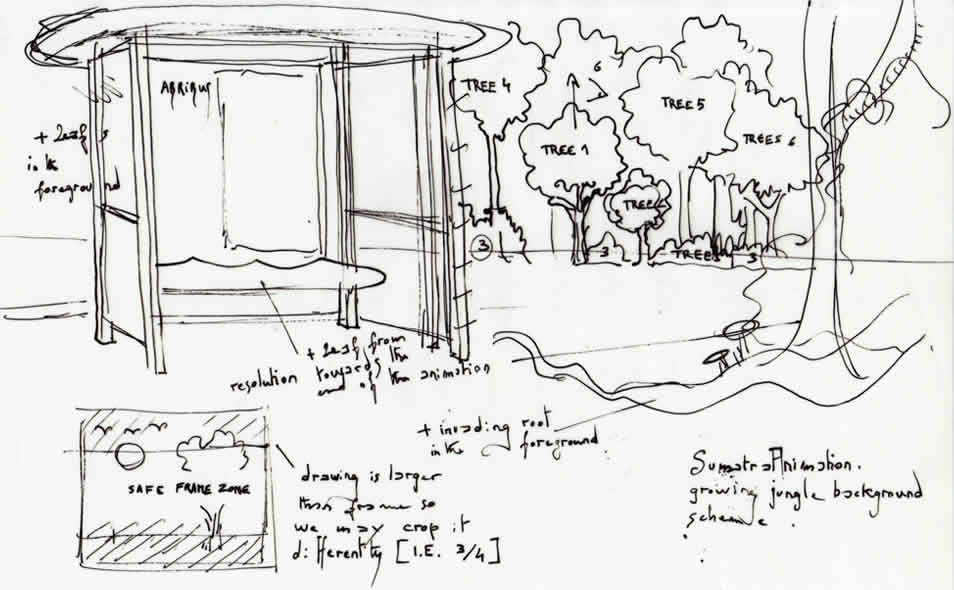 ABRIBUS
TREE 4
6
TREE 5
TREE 1
TREES 6
TREE
3
3
TREES
3
+ leafs
in the
foreground
+ leaf from
resolution towards the
end of the animation
+ invading root
in the foreground
SAFE FRAME ZONE
drawing is larger
than frame so
we may crop it
differently [I.E. 3/4]
Sumatra Animation.
growing jungle background
scheme.